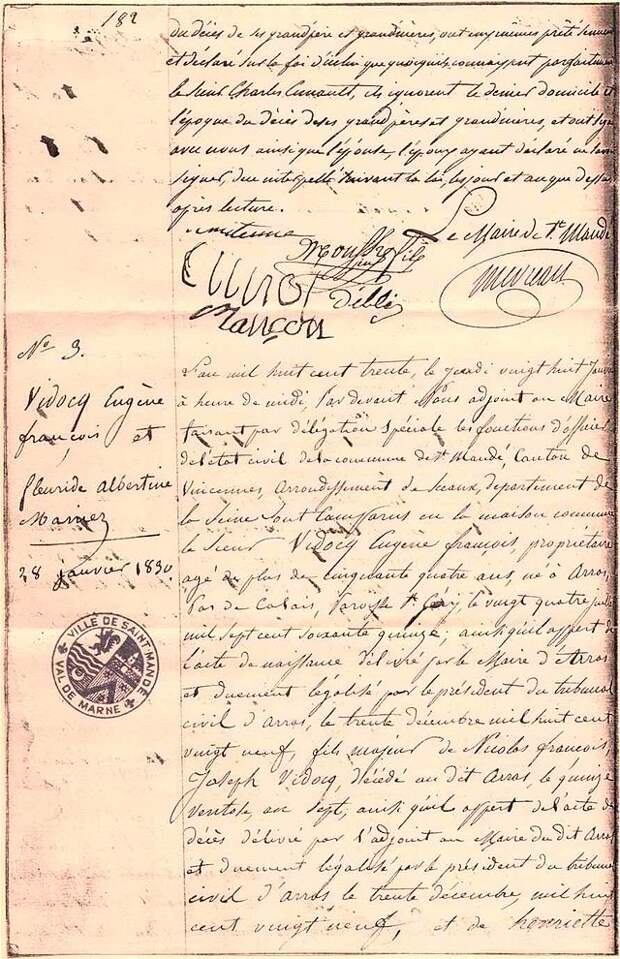 182
du décès de ses grandpère et grandmères, ont eux mêmes prêté serment
et déclaré sur la foi d'icelui que quoiqu'ils connoissent parfaitement
le sieur Charles, ils ignorent le dernier domicile et
l'époque du décès de ses grandpères et grandmères, et ont signé
avec nous ainsi que l'épouse, l'époux ayant déclaré ne savoir
signer, de ce interpellé suivant la loi, les jour et an que dessus
après lecture.
Le Maire de St Mandé
Mançon
No 3.
Vidocq Eugène
françois et
fleuride albertine
Maniez
28 janvier 1830
VILLE DE SAINT MANDÉ
VAL DE MARNE
L'an mil huit cent trente, le jeudi vingt huit Janvier
à heure de midi, Par devant Nous adjoint au Maire
faisant par délégation Spéciale les fonctions d'officier
de l'état civil de la commune de St Mandé, Canton de
Vincennes, Arrondissement de Sceaux, département de
la Seine Sont Comparus en la maison commune
le Sieur Vidocq Eugène françois, propriétaire
agé de plus de cinquante quatre ans, né à Arras,
Pas de Calais, Paroisse St Géry, le vingt quatre juillet
mil sept cent soixante quinze, ainsi qu'il appert de
l'acte de naissance délivré par le Maire d'Arras
et duement légalisé par le président du tribunal
civil d'Arras, le trente décembre mil huit cent
vingt neuf, fils majeur de Nicolas françois,
Joseph Vidocq, décédé au dit Arras, le quinze
Ventose, an Sept, ainsi qu'il appert de l'acte de
décès délivré par l'adjoint au Maire du dit Arras
et duement légalisé par le président du tribunal
civil d'Arras le trente décembre, mil huit
cent vingt neuf, et de henriette